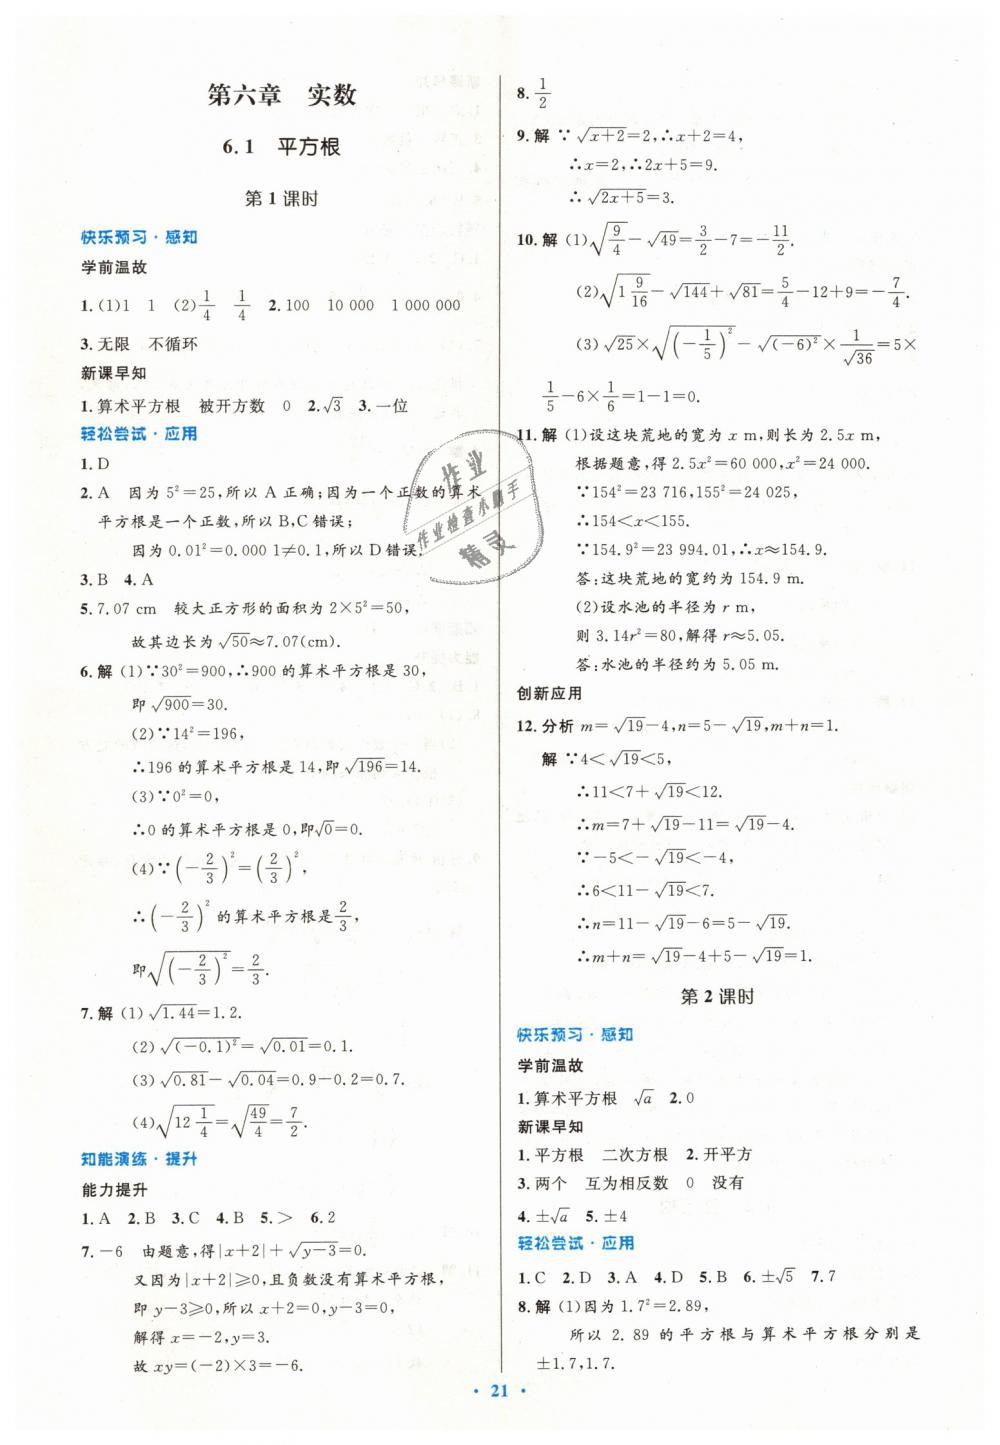 第六章 实数
6.1 平方根
第1课时
快乐预习·感知
学前温故
1.(1)1 1 (2)1/4 1/4 2.100 10 000 1 000 000
3.无限 不循环
新课早知
1.算术平方根 被开方数 0 2.√3 3.一位
轻松尝试·应用
1.D
2.A 因为 5²=25,所以 A 正确;因为一个正数的算术
平方根是一个正数,所以 B,C 错误;
因为 0.01²=0.000 1≠0.1,所以 D 错误.
3.B 4.A
5.7.07 cm 较大正方形的面积为 2×5²=50,
故其边长为 √50≈7.07(cm).
6.解 (1)∵30²=900,∴900 的算术平方根是 30,
即 √900=30.
(2)∵14²=196,
∴196 的算术平方根是 14,即 √196=14.
(3)∵0²=0,
∴0 的算术平方根是 0,即√0=0.
(4)∵(-2/3)²=(2/3)²,
∴(-2/3)² 的算术平方根是2/3,
即√((-2/3)²)=2/3.
7.解 (1)√1.44=1.2.
(2)√((-0.1)²)=√0.01=0.1.
(3)√0.81-√0.04=0.9-0.2=0.7.
(4)√(12 1/4)=√(49/4)=7/2.
知能演练·提升
能力提升
1.A 2.B 3.C 4.B 5.> 6.2
7.-6 由题意,得|x+2|+√(y-3)=0.
又因为|x+2|≥0,且负数没有算术平方根,
即 y-3≥0,所以 x+2=0,y-3=0,
解得 x=-2,y=3.
故 xy=(-2)×3=-6.
8.1/2
9.解 ∵√(x+2)=2,∴x+2=4,
∴x=2,∴2x+5=9.
∴√(2x+5)=3.
10.解 (1)√(9/4)-√49=3/2-7=-11/2.
(2)√(1 9/16)-√144+√81=5/4-12+9=-7/4.
(3)√25×√((-1/5)²)-√((-6)²)×1/√36=5×
1/5-6×1/6=1-1=0.
11.解 (1)设这块荒地的宽为 x m,则长为 2.5x m,
根据题意,得 2.5x²=60 000,x²=24 000.
∵154²=23 716,155²=24 025,
∴154<x<155.
∵154.9²=23 994.01,∴x≈154.9.
答:这块荒地的宽约为 154.9 m.
(2)设水池的半径为 r m,
则 3.14r²=80,解得 r≈5.05.
答:水池的半径约为 5.05 m.
创新应用
12.分析 m=√19-4,n=5-√19,m+n=1.
解 ∵4<√19<5,
∴11<7+√19<12.
∴m=7+√19-11=√19-4.
∵-5<-√19<-4,
∴6<11-√19<7.
∴n=11-√19-6=5-√19.
∴m+n=√19-4+5-√19=1.
第2课时
快乐预习·感知
学前温故
1.算术平方根 √a 2.0
新课早知
1.平方根 二次方根 2.开平方
3.两个 互为相反数 0 没有
4.±√a 5.±4
轻松尝试·应用
1.C 2.D 3.A 4.D 5.B 6.±√5 7.7
8.解 (1)因为 1.7²=2.89,
所以 2.89 的平方根与算术平方根分别是
±1.7,1.7.
作业
作业检查小助手
精灵
· 21 ·